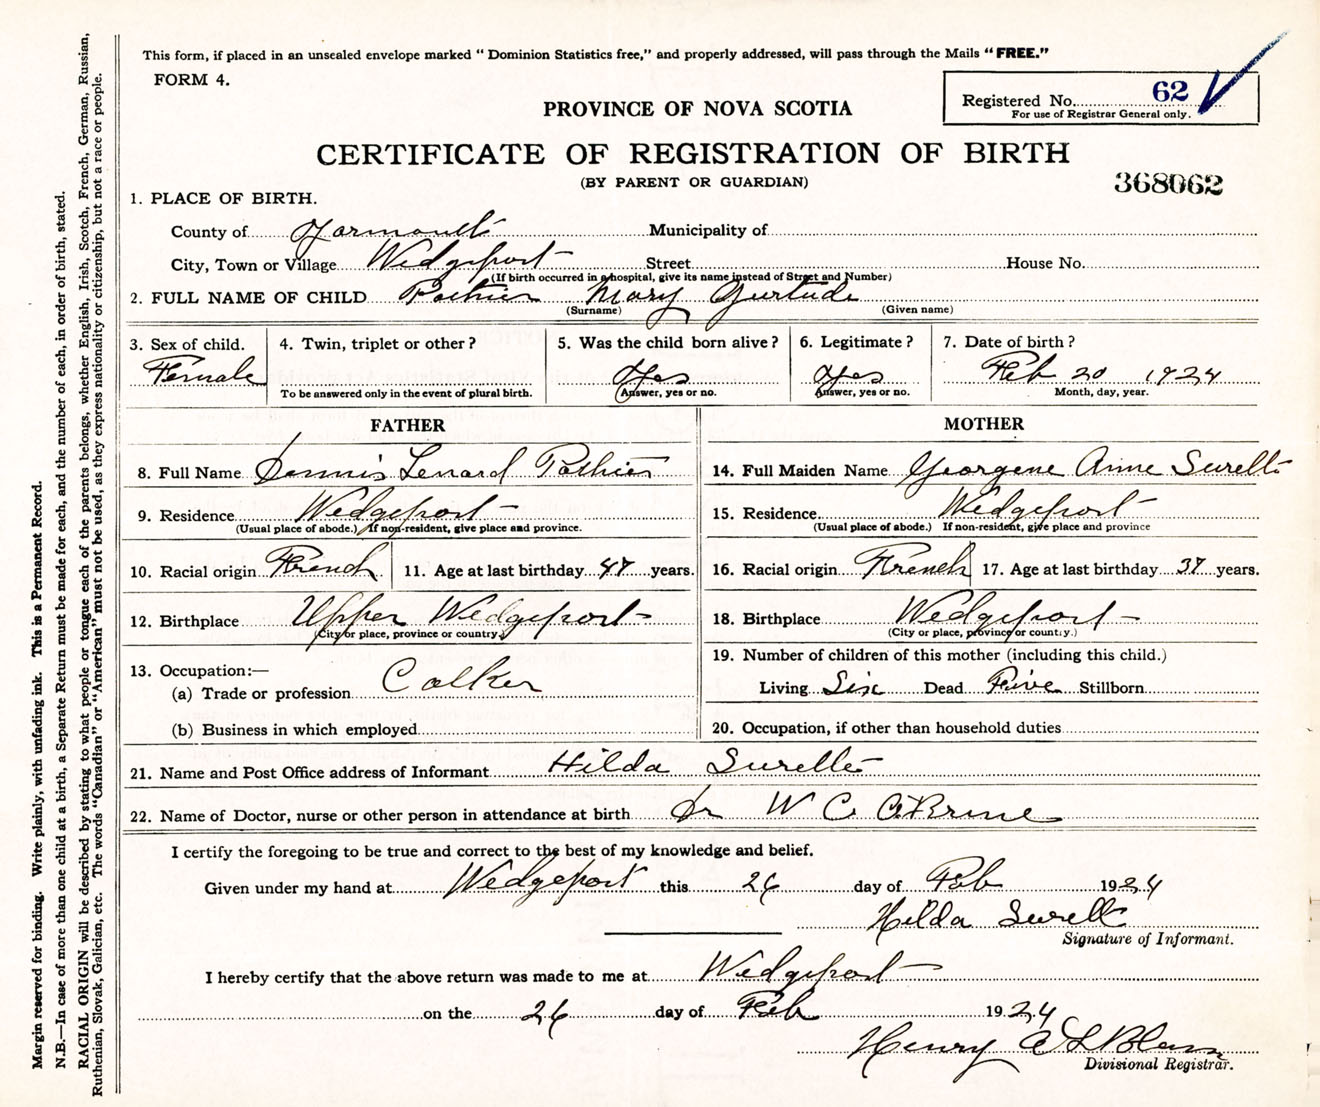 This form, if placed in an unsealed envelope marked “ Dominion Statistics free,” and properly addressed, will pass through the Mails “ FREE.”
FORM 4.
Registered No. 62
For use of Registrar General only.
PROVINCE OF NOVA SCOTIA
CERTIFICATE OF REGISTRATION OF BIRTH
(BY PARENT OR GUARDIAN)
368062
1. PLACE OF BIRTH.
County of Yarmouth Municipality of
City, Town or Village Wedgeport Street House No.
(If birth occurred in a hospital, give its name instead of Street and Number)
2. FULL NAME OF CHILD Pothier Mary Gurtude
(Surname) (Given name)
3. Sex of child. 4. Twin, triplet or other ? 5. Was the child born alive ? 6. Legitimate ? 7. Date of birth ?
Female Yes Yes Feb 20 1924
To be answered only in the event of plural birth. Answer, yes or no. Answer, yes or no. Month, day, year.
FATHER MOTHER
8. Full Name Dennis Lenard Pothier 14. Full Maiden Name Georgene Anne Surette
9. Residence Wedgeport 15. Residence Wedgeport
(Usual place of abode.) If non-resident, give place and province. (Usual place of abode.) If non-resident, give place and province
10. Racial origin French 11. Age at last birthday 47 years. 16. Racial origin French 17. Age at last birthday 37 years.
12. Birthplace Upper Wedgeport 18. Birthplace Wedgeport
(City or place, province or country.) (City or place, province or country.)
19. Number of children of this mother (including this child.)
13. Occupation:—
(a) Trade or profession Calker Living Six Dead Five Stillborn
(b) Business in which employed 20. Occupation, if other than household duties
21. Name and Post Office address of Informant Hilda Surette
22. Name of Doctor, nurse or other person in attendance at birth Dr W C O'Brine
I certify the foregoing to be true and correct to the best of my knowledge and belief.
Given under my hand at Wedgeport this 26 day of Feb 1924
Hilda Surett
Signature of Informant.
I hereby certify that the above return was made to me at Wedgeport
on the 26 day of Feb 1924
Henry
Divisional Registrar.
Margin reserved for binding. Write plainly, with unfading ink. This is a Permanent Record.
N.B.—In case of more than one child at a birth, a Separate Return must be made for each, and the number of each, in order of birth, stated.
RACIAL ORIGIN will be described by stating to what people or tongue each of the parents belongs, whether English, Irish, Scotch, French, German, Russian,
Ruthenian, Slovak, Galician, etc. The words “Canadian” or “American” must not be used, as they express nationality or citizenship, but not a race or people.